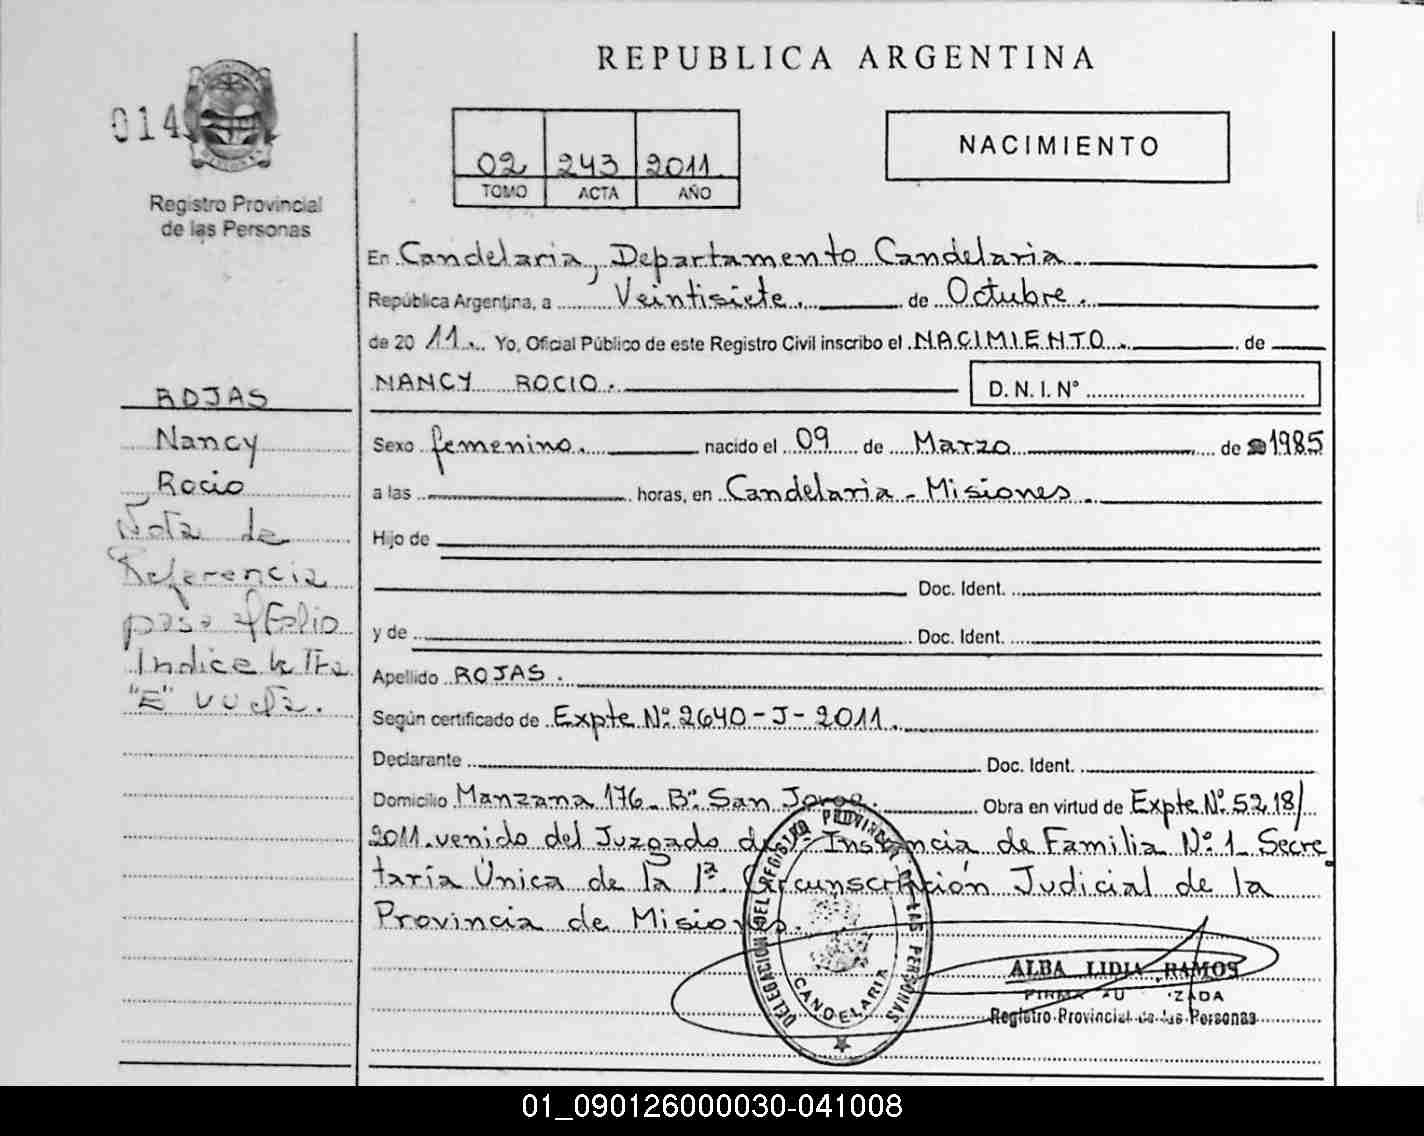 REPUBLICA ARGENTINA
014
Registro Provincial
de las Personas
02 243 2011
TOMO ACTA AÑO
NACIMIENTO
En Candelaria, Departamento Candelaria
República Argentina, a Veintisiete. de Octubre.
de 20 11. Yo, Oficial Público de este Registro Civil inscribo el NACIMIENTO. de
NANCY ROCIO. D. N. I. Nº
Sexo femenino. nacido el 09 de Marzo de 1985
a las horas, en Candelaria - Misiones.
Hijo de
Doc. Ident.
y de Doc. Ident.
Apellido ROJAS.
Según certificado de Expte Nº 2640-J-2011.
Declarante Doc. Ident.
Domicilio Manzana 176. Bº San Jorge. Obra en virtud de Expte Nº 5218/
2011. venido del Juzgado de 1º Instancia de Familia Nº 1 Secre
taría Única de la 1ª Circunscripción Judicial de la
Provincia de Misiones.
ROJAS
Nancy
Rocio
Nota de
Referencia
pasa al Folio
Indice letra
"E" vuelta.
DELEGACION DEL REGISTRO PROVINCIAL DE LAS PERSONAS
CANDELARIA
ALBA LIDIA RAMOS
FIRMA AUTORIZADA
Registro Provincial de las Personas
01_090126000030-041008